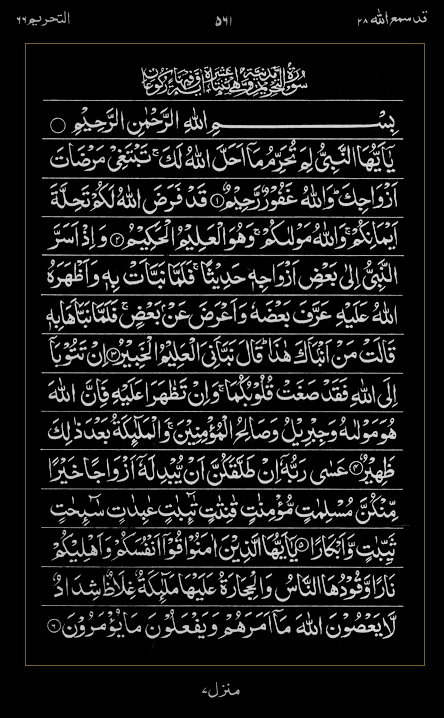 قد سمع الله ٢٨
٥٦١
التحريم ٦٦
سُوْرَةُ التَّحْرِيْمِ مَدَنِيَّةٌ وَّهِيَ اثْنَتَا عَشْرَةَ اٰيَةً وَّفِيْهَا رُكُوْعَانِ
بِسْمِ اللهِ الرَّحْمٰنِ الرَّحِيْمِ
يٰۤاَيُّهَا النَّبِىُّ لِمَ تُحَرِّمُ مَاۤ اَحَلَّ اللهُ لَكَ ۚ تَبْتَغِىْ مَرْضَاتَ
اَزْوَاجِكَ ؕ وَاللهُ غَفُوْرٌ رَّحِيْمٌ ۝١ قَدْ فَرَضَ اللهُ لَكُمْ تَحِلَّةَ
اَيْمَانِكُمْ ۚ وَاللهُ مَوْلٰىكُمْ ۚ وَهُوَ الْعَلِيْمُ الْحَكِيْمُ ۝٢ وَاِذْ اَسَرَّ
النَّبِىُّ اِلٰى بَعْضِ اَزْوَاجِهٖ حَدِيْثًا ۚ فَلَمَّا نَبَّاَتْ بِهٖ وَاَظْهَرَهُ
اللهُ عَلَيْهِ عَرَّفَ بَعْضَهٗ وَاَعْرَضَ عَنْۢ بَعْضٍ ۚ فَلَمَّا نَبَّاَهَا بِهٖ
قَالَتْ مَنْ اَنْۢبَاَكَ هٰذَا ؕ قَالَ نَبَّاَنِىَ الْعَلِيْمُ الْخَبِيْرُ ۝٣ اِنْ تَتُوْبَاۤ
اِلَى اللهِ فَقَدْ صَغَتْ قُلُوْبُكُمَا ۚ وَاِنْ تَظٰهَرَا عَلَيْهِ فَاِنَّ اللهَ
هُوَ مَوْلٰىهُ وَجِبْرِيْلُ وَصَالِحُ الْمُؤْمِنِيْنَ ۚ وَالْمَلٰٓئِكَةُ بَعْدَ ذٰلِكَ
ظَهِيْرٌ ۝٤ عَسٰى رَبُّهٗۤ اِنْ طَلَّقَكُنَّ اَنْ يُّبْدِلَهٗۤ اَزْوَاجًا خَيْرًا
مِّنْكُنَّ مُسْلِمٰتٍ مُّؤْمِنٰتٍ قٰنِتٰتٍ تٰٓئِبٰتٍ عٰبِدٰتٍ سٰٓئِحٰتٍ
ثَيِّبٰتٍ وَّاَبْكَارًا ۝٥ يٰۤاَيُّهَا الَّذِيْنَ اٰمَنُوْا قُوْۤا اَنْفُسَكُمْ وَاَهْلِيْكُمْ
نَارًا وَّقُوْدُهَا النَّاسُ وَالْحِجَارَةُ عَلَيْهَا مَلٰٓئِكَةٌ غِلَاظٌ شِدَادٌ
لَّا يَعْصُوْنَ اللهَ مَاۤ اَمَرَهُمْ وَيَفْعَلُوْنَ مَا يُؤْمَرُوْنَ ۝٦
منزل ٧